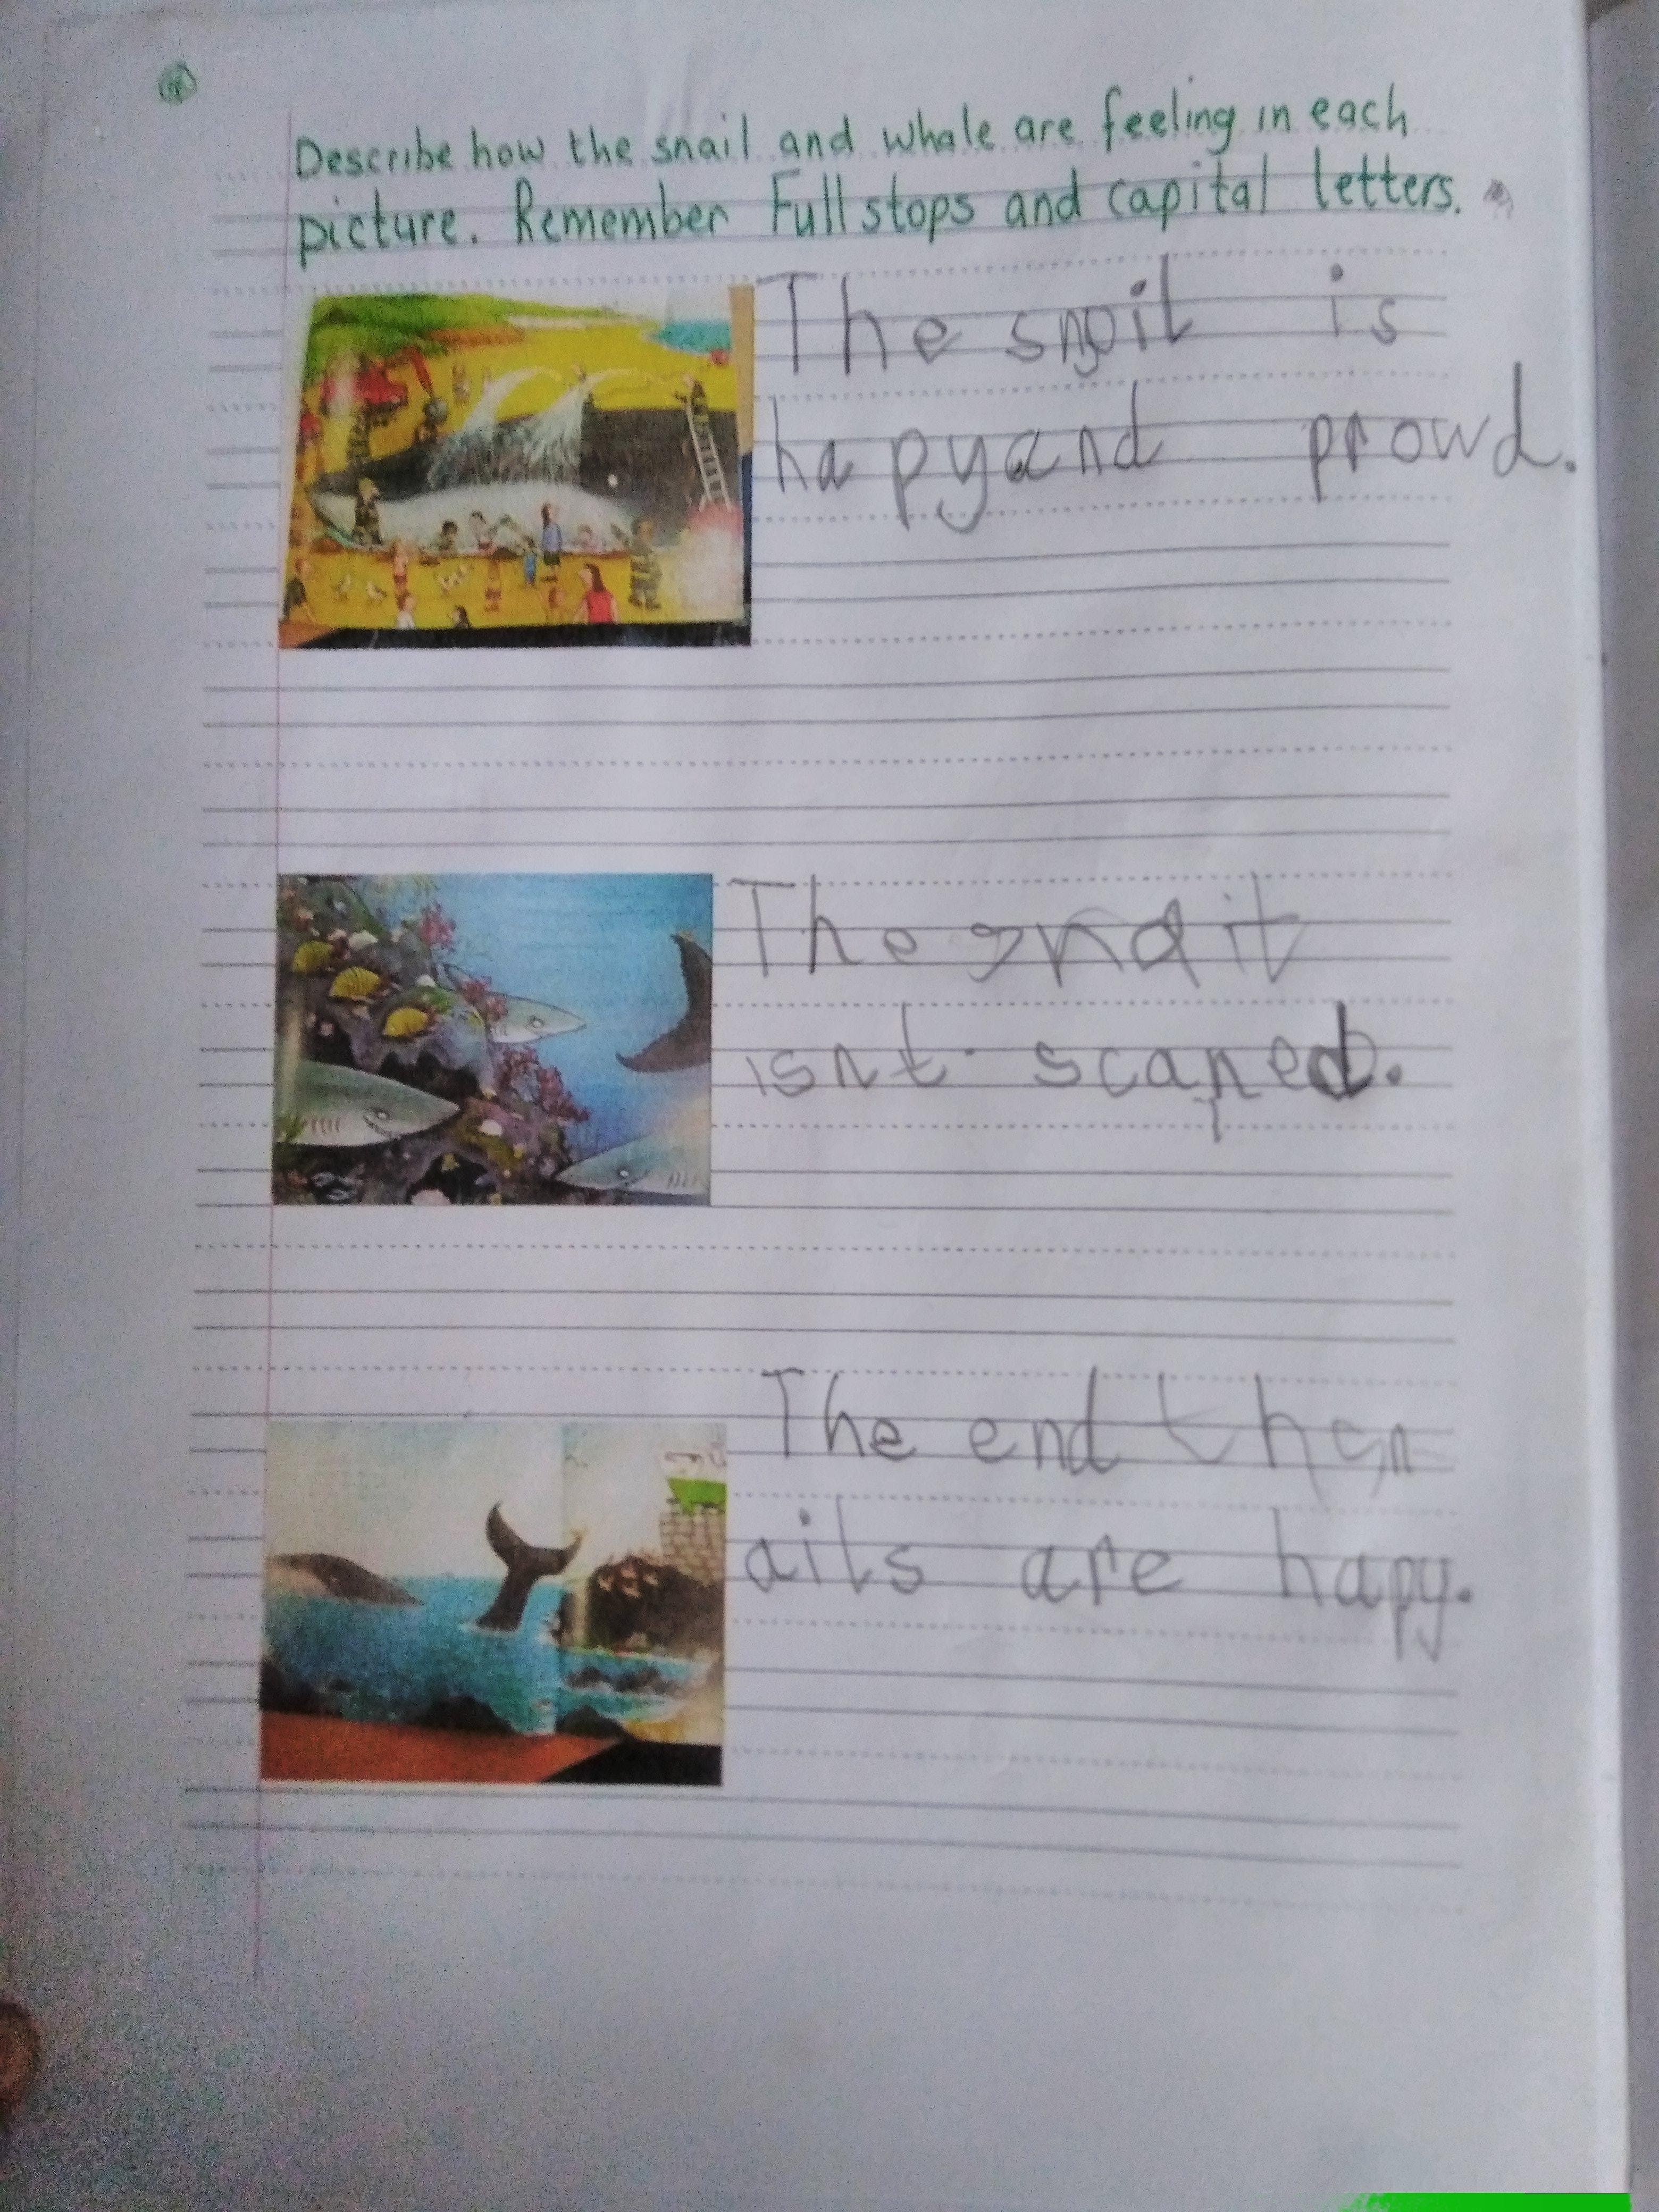 Describe how the snail and whale are feeling in each
picture. Remember Full stops and capital letters.
The snail is
hapyand prowd.
The snail
isnt scared.
The end the
ails are hapy.